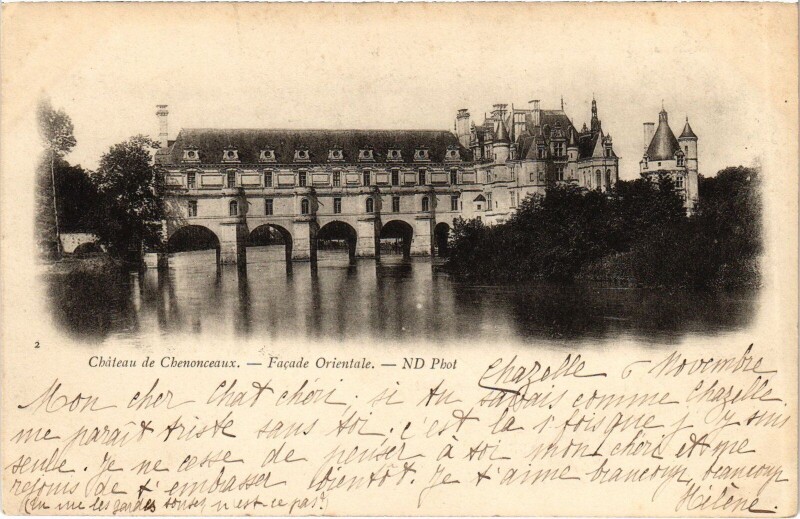 2
Château de Chenonceaux. — Façade Orientale. — ND Phot
Chazelle 6 Novembre
Mon cher Chat chéri, si tu savais comme Chazelle
me paraît triste sans toi, c'est la 1e fois que j'y suis
seule. Je ne cesse de penser à toi mon chéri et me
réjouis de t'embasser bientôt. Je t'aime biancoup, biancoup
(tu me les gardes toutes n'est-ce pas?)
Hélène.